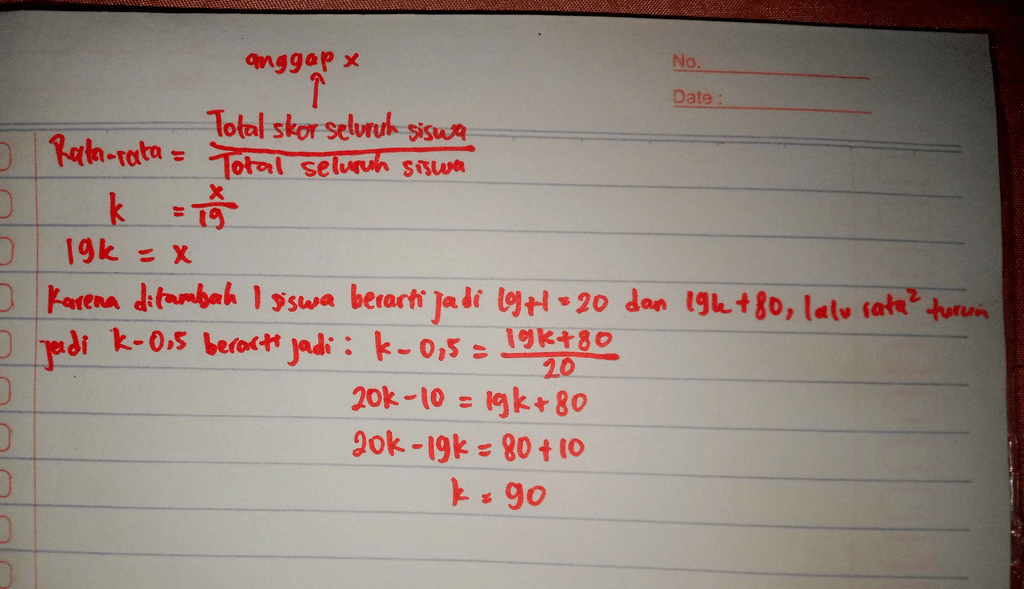 anggap x
↑
No.
Date :
Rata-rata = Total skor seluruh siswa / Total seluruh siswa
k = x / 19
19k = x
Karena ditambah 1 siswa berarti jadi 19+1 = 20 dan 19k + 80, lalu rata² turun
jadi k - 0,5 berarti jadi : k - 0,5 = 19k+80 / 20
20k - 10 = 19k + 80
20k - 19k = 80 + 10
k = 90